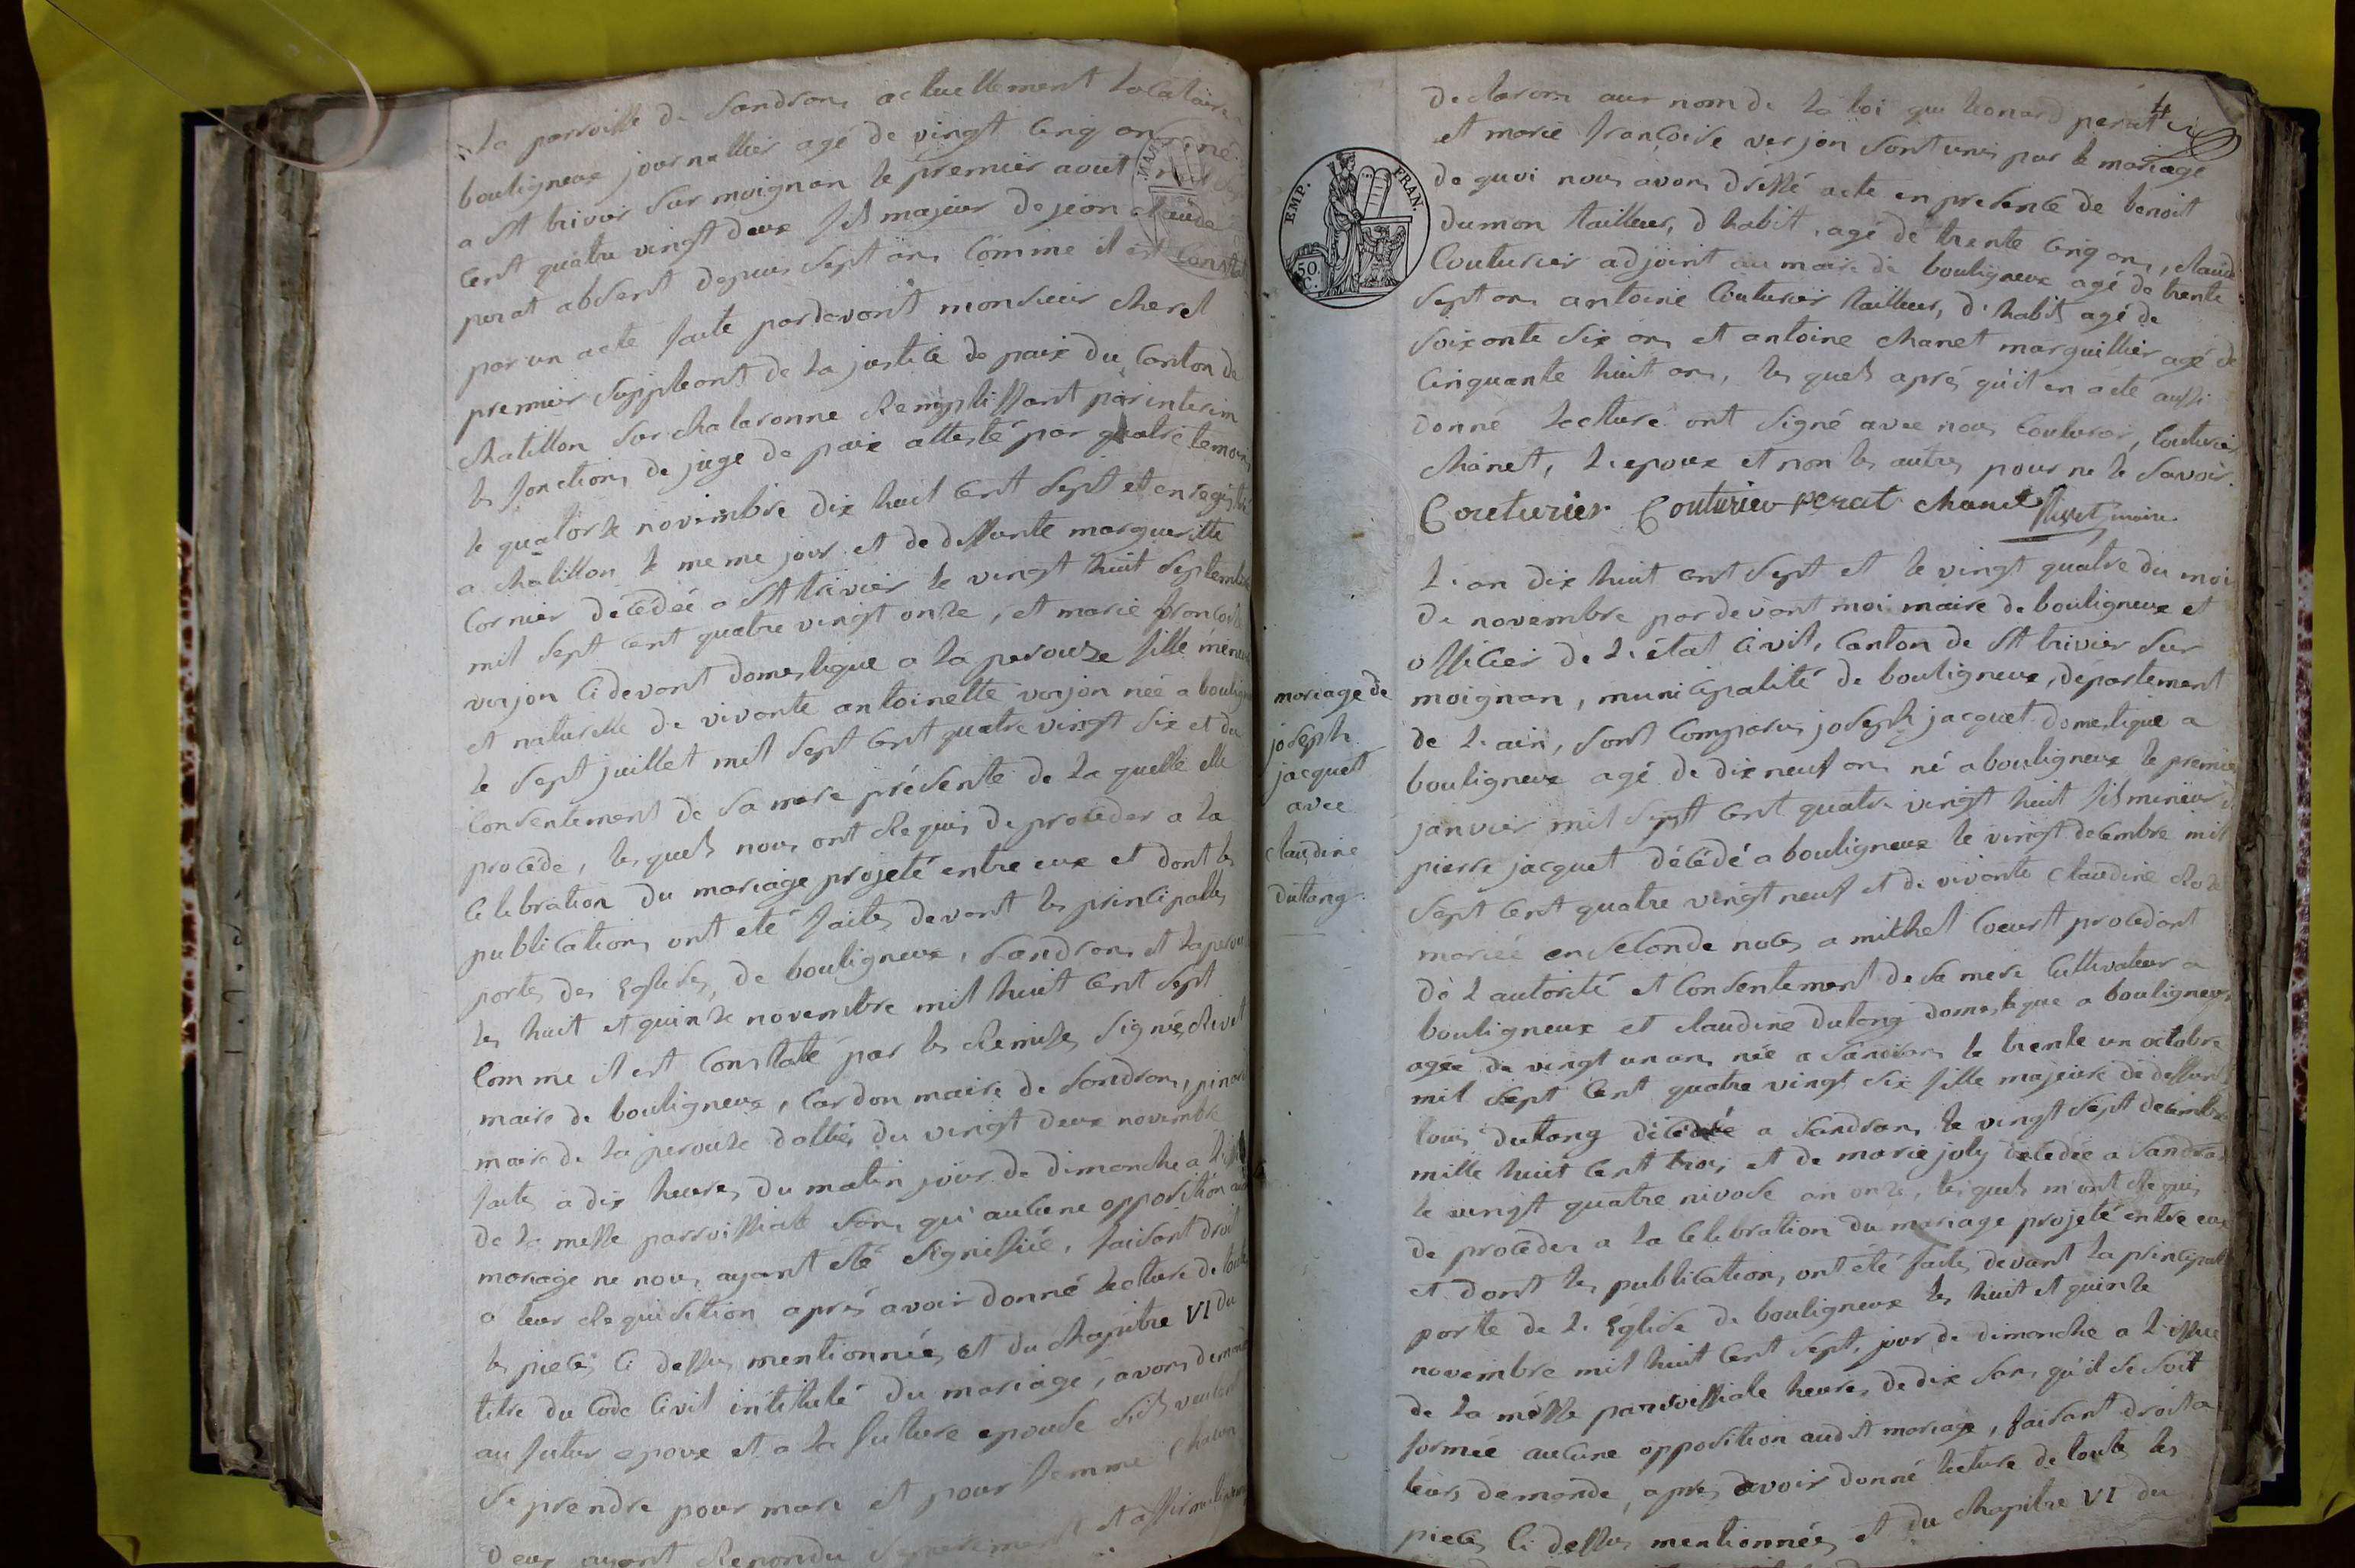 la parroisse de Sandrans actuellement locataire
bouligneux journallier agé de vingt cinq ans né
a St trivier sur moignan le premier aout mil sept
cent quatre vingt deux fils majeur de jean claude
perat absent depuis sept ans comme il est constaté
par un acte faite pardevant monsieur cherel
premier suppleant de la justice de paix du canton de
chatillon sur chalaronne remplissant par interim
les fonctions de juge de paix attesté par quatre temoins
le quatorze novembre dix huit cent sept et enregistré
a chatillon le meme jour et de deffunte margueritte
cornier décédée a St trivier le vingt huit septembre
mil sept cent quatre vingt onze, et marie francoise
verjon cidevant domestique a la perouze fille mineure
et naturelle de vivante antoinette verjon née a bouligneux
le sept juillet mil sept cent quatre vingt six et du
consentement de sa mere présente de la quelle elle
procéde, les quels nous ont requis de proceder a la
celebration du mariage projeté entre eux et dont les
publications ont eté faites devant les principalles
portes des Eglises, de bouligneux, Sandrans et laperouze
les huit et quinze novembre mil huit cent sept
comme il est constaté par les remises signée, rivet
maire de bouligneux, cardon maire de Sandrans, pinard
maire de la perouze dattées du vingt deux novembre
faites a dix heures du matin jour de dimanche a l'issue
de la messe parroissiale sans qu'aucune opposition audit
mariage ne nous ayant eté signiffiée, faisant droit
a leur requisition aprés avoir donné lecture de toutes
les pieces ci dessus mentionnées et du chapitre VI du
titre du Code Civil intitulé du mariage, avons demandé
au futur epoux et a la future epouse s'ils veulent
se prendre pour mari et pour femme chacun
deux ayant repondu separement et affirmativement
declarons aux nom de la loi que leonard perat
et marie francoise verjon sont unis par le mariage
de quoi nous avons dressé acte en presence de benoit
dumon tailleur, d'habit, agé de trente cinq ans, claude
Couturier adjoint au maire de bouligneux agé de trente
sept ans antoine Couturier tailleur, d'habit agé de
soixante six ans et antoine chanet marguillier agé de
cinquante huit ans, les quels aprés qu'il en a eté aussi
donné lecture ont signé avec nous Couturier, Couturier
chanet, l'epoux et non les autres pour ne le savoir.
Couturier Couturier perat chanet Rivet maire
EMP. FRAN.
50. C.
mariage de
joseph
jacquet
avec
claudine
dutang
L'an dix huit cent sept et le vingt quatre du mois
de novembre pardevant moi maire de bouligneux et
officier de l'état civil, Canton de St trivier sur
moignan, municipalité de bouligneux, département
de l'ain, sont comparus joseph jacquet domestique a
bouligneux agé de dixneuf ans né a bouligneux le premier
janvier mil sept cent quatre vingt huit fils mineur de
pierre jacquet décédé a bouligneux le vingt decembre mil
sept cent quatre vingt neuf et de vivante claudine
mariée en seconde noces a michel Coeurt procedant
de l'autorité et consentement de sa mere cultivateur a
bouligneux et claudine dutang domestique a bouligneux
agée de vingt un ans née a Sandrans le trente un octobre
mil sept cent quatre vingt six fille majeure de deffunt
louis dutang décédé a Sandrans le vingt sept decembre
mille huit cent trois et de marie joly décédée a Sandrans
le vingt quatre nivose an onze, lesquels m'ont requis
de proceder a la celebration du mariage projeté entre eux
et dont les publications ont eté faites devant la principale
porte de l'Eglise de bouligneux les huit et quinze
novembre mil huit cent sept, jour de dimanche a l'issue
de la messe parroissiale heures de dix sans qu'il se soit
formée aucune opposition audit mariage, faisant droit a
leurs demande, apres avoir donné lecture de toutes les
pieces ci dessus mentionnées et du chapitre VI du